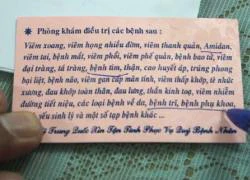 Phòng khám điều trị các bệnh sau :
Viêm xoang, viêm họng nhiều đờm, viêm thanh quản, Amidan,
viêm tai, bệnh mắt, viêm phổi, viêm phế quản, bệnh bao tử, viêm
đại tràng, tá tràng, bệnh tim, thận, cao huyết áp, trúng phong
bại liệt, bệnh não, viêm gan cấp mãn tính, viêm thấp khớp, tê nhức
xương, đau khớp toàn thân, đau lưng, thần kinh tọa, viêm nhiễm
đường tiết niệu, các loại bệnh về da, bệnh trĩ, bệnh phụ khoa,
yếu sinh lý và một số tạp bệnh khác ...
Trung Quốc Xin Tận Tình Phục Vụ Quý Bệnh Nhân